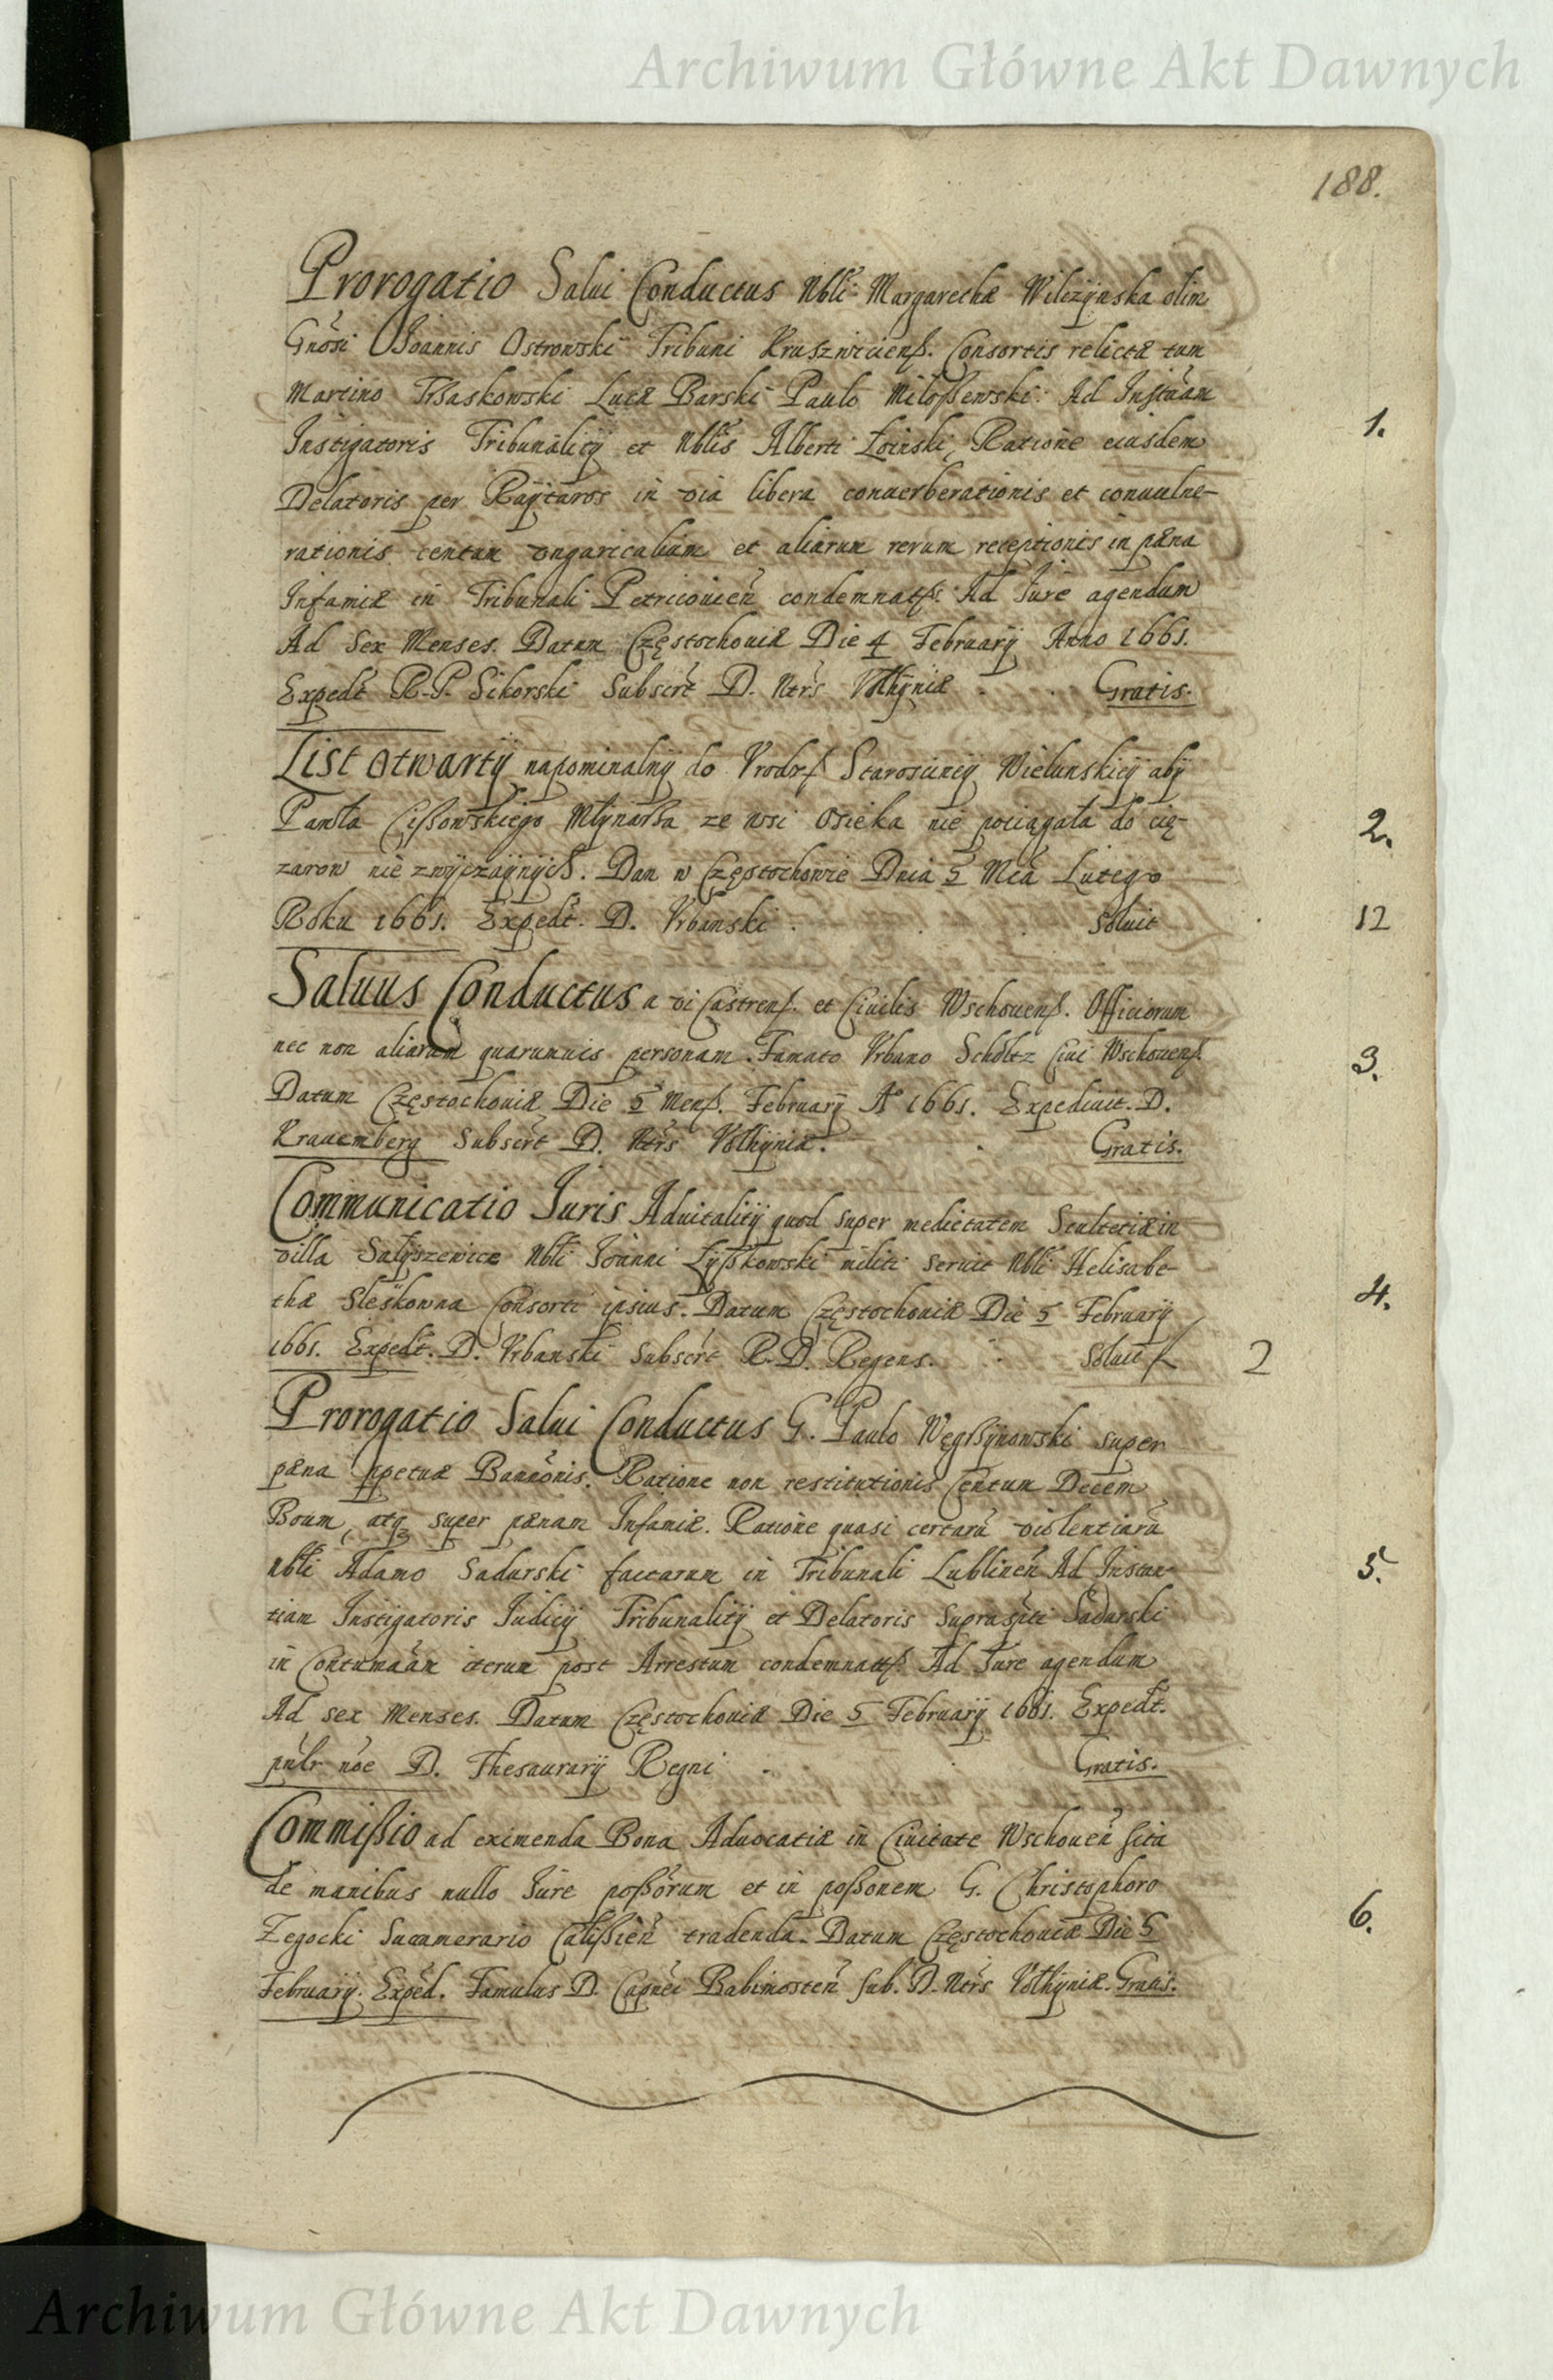 Archiwum Główne Akt Dawnych
188.
Prorogatio Salui Conductus Nbli Margarethæ Wilczynska olim
Gnosi Joannis Ostrowski Tribuni Kruszwicienß. Consortis relictæ tum
Martino Trßaskowski Lucæ Barski Paulo Miloßewski. Ad Instãm
Instigatoris Tribunalicij et Nblis Alberti Łoinski, Ratione eiusdem
Delatoris per Raÿtaros in via libera conuerberationis et conuulne-
rationis centum vngaricalium et aliarum rerum receptionis in pæna
Infamiæ in Tribunali Petricouień condemnatß. Ad Jure agendum
Ad Sex Menses. Datum Częstochouiæ Die 4 February Anno 1661.
Expedt R. P. Sikorski Subscrt D. Ntrs Volhyniæ Gratis.
1.
List otwartÿ napominalnÿ do Vrodzß Staroscincÿ Wielunskicÿ abÿ
Pawła Cißowskiego Młÿnarßa ze wsi Osieka nie pociągała do cię-
zarow nie zwÿczaÿnÿch. Dan w Częstochowie Dnia 5 Mca Lutego
Roku 1661. Expedt. D. Vrbanski Soluit
2.
12
Saluus Conductus a vi Castrenß. et Ciuilis Wschouenß. Officiorum
nec non aliarum quarumuis personam. Famato Vrbano Scholtz Ciui Wschouenß.
Datum Częstochouiæ Die 5 Menß. Februarÿ Aº 1661. Expediuit. D.
Krauemberg Subscrt D. Ntrs Volhyniæ. Gratis.
3.
Communicatio Juris Aduitalitÿ quod super medietatem Scultetiæ in
villa Salÿszewice Nbli Joanni Lÿßkowski militi seruit Nbli Helisabe-
thæ Sleskowna Consorti ipsius. Datum Częstochouiæ Die 5 Februarÿ
1661. Expedt. D. Vrbanski Subscrt R. D. Regens. Soluit
4.
2
Prorogatio Salui Conductus G. Paulo Węgrßÿnowski super
pæna ppetuæ Bannonis. Ratione non restitutionis Centum Decem
Boum, atq super pænam Infamiæ. Ratione quasi certarũ violentiarũ
Nbli Adamo Sadurski factarum in Tribunali Lublineñ Ad Instan-
tiam Instigatoris Judicÿ Tribunalitÿ et Delatoris Suprascti Sadurski
in Contumaãm iterum post Arrestum condemnattß. Ad Jure agendum
Ad sex Menses. Datum Częstochouiæ Die 5 Februarÿ 1661. Expedt.
noe D. Thesaurarÿ Regni Gratis.
5.
Commißio ad eximenda Bona Aduocatiæ in Ciuitate Wschoueñ sita
de manibus nullo Jure poßorum et in poßonem G. Christophoro
Zegocki Succamerario Calißieñ tradenda. Datum Częstochouiæ Die 5
Februarÿ. Exped. Famulus D. Capnei Babimosteñ Sub. D. Ntrs Volhyniæ. Gratis.
6.
Archiwum Główne Akt Dawnych